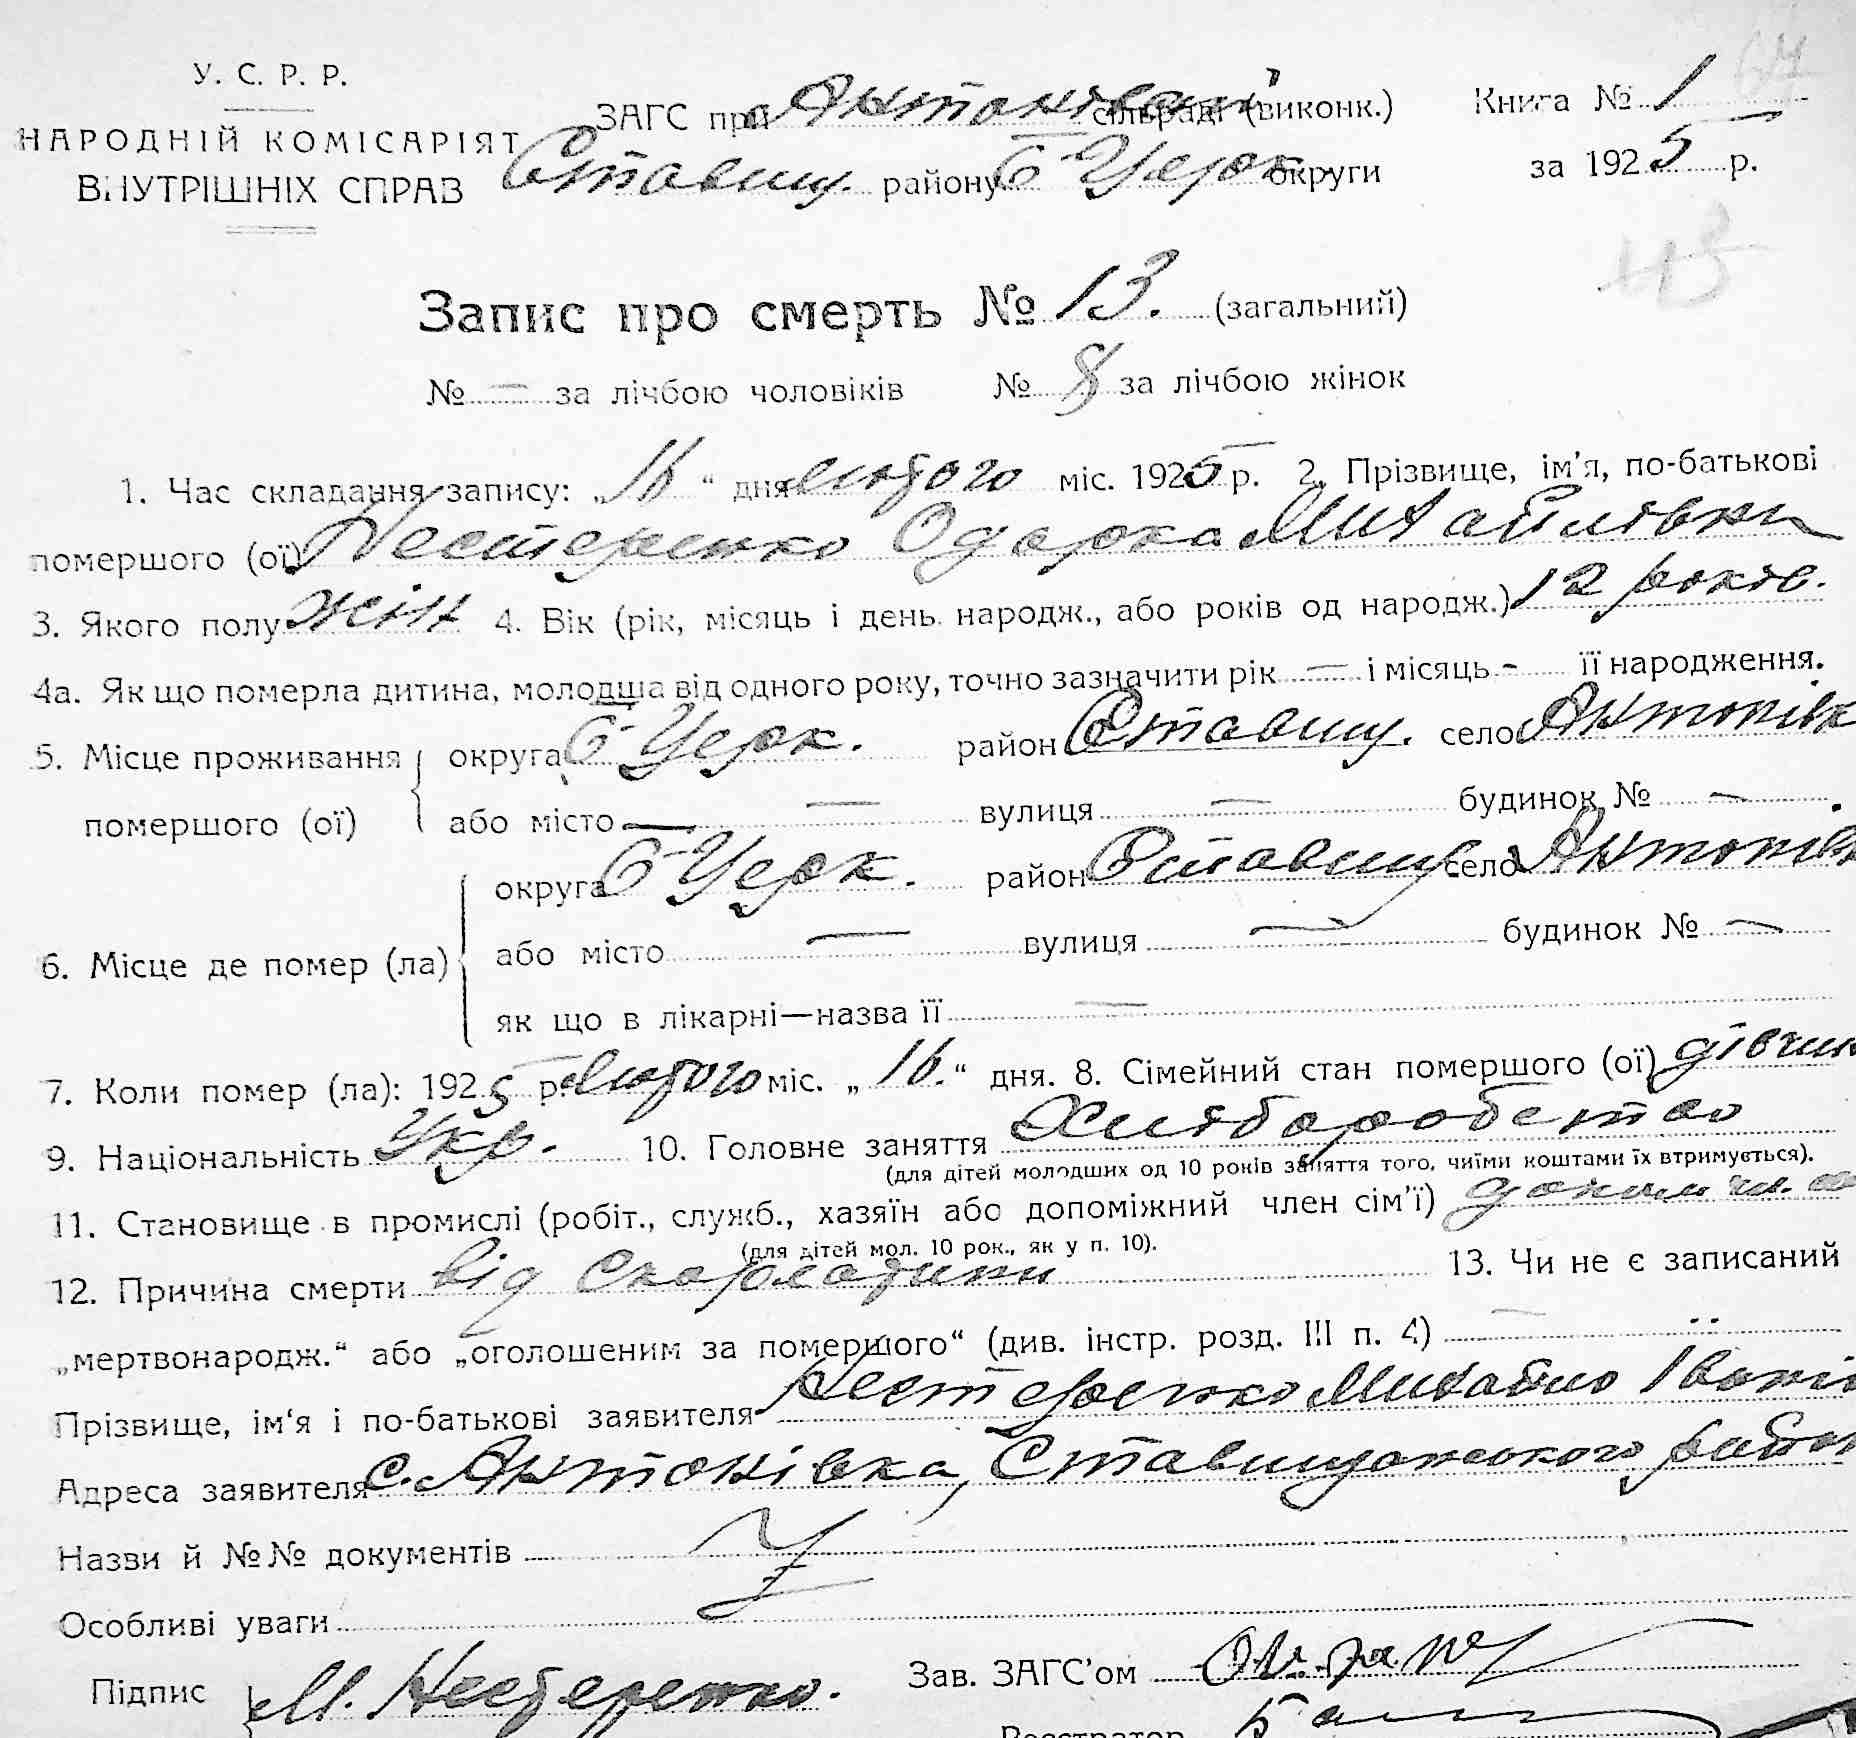 У. С. Р. Р.
НАРОДНІЙ КОМІСАРІЯТ
ВНУТРІШНІХ СПРАВ
ЗАГС при Антонівській сільраді (виконк.)
Ставищ. району Б-Церк. округи
Книга № 1
за 1925 р.
Запис про смерть № 13. (загальний)
№ — за лічбою чоловіків № 8 за лічбою жінок
1. Час складання запису: „16“ дня лютого міс. 1925 р. 2. Прізвище, ім’я, по-батькові
помершого (ої) Нестеренко Одарка Михайлівна
3. Якого полу жін 4. Вік (рік, місяць і день народж., або років од народж.) 12 років.
4а. Як що померла дитина, молодща від одного року, точно зазначити рік — і місяць - її народження.
5. Місце проживання помершого (ої)
округа Б-Церк. район Ставищ. село Антонівк
або місто — вулиця — будинок № —
6. Місце де помер (ла)
округа Б-Церк. район Ставищ село Антонівк
або місто — вулиця — будинок № —
як що в лікарні—назва її —
7. Коли помер (ла): 1925 р. лютого міс. „16.“ дня. 8. Сімейний стан помершого (ої) дівчин
9. Національність Укр. 10. Головне заняття Хліборобство
(для дітей молодших од 10 років заняття того, чиїми коштами їх втримується).
11. Становище в промислі (робіт., служб., хазяїн або допоміжний член сім’ї)
(для дітей мол. 10 рок., як у п. 10).
12. Причина смерти від Скарлатини 13. Чи не є записаний
„мертвонародж.“ або „оголошеним за помершого“ (див. інстр. розд. III п. 4) —
Прізвище, ім‘я і по-батькові заявителя Нестеренко Михайло Івані
Адреса заявителя с. Антонівка, Ставищанського район
Назви й №№ документів
Особливі уваги
Підпис М. Нестеренко. Зав. ЗАГС’ом
Реєстратор